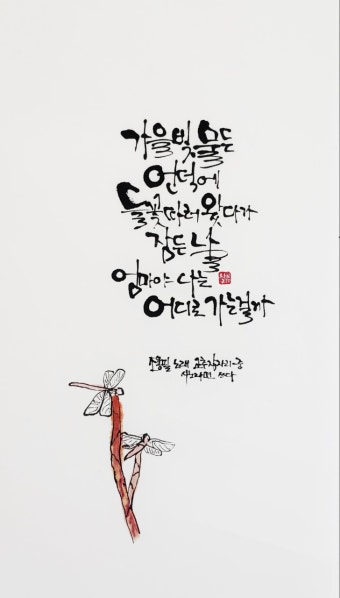 가을빛 물든
언덕에
들꽃 따러 왔다가
잠든 날
엄마야 나는
어디로 가는걸까
조용필 노래 고추잠자리 중
쓰다